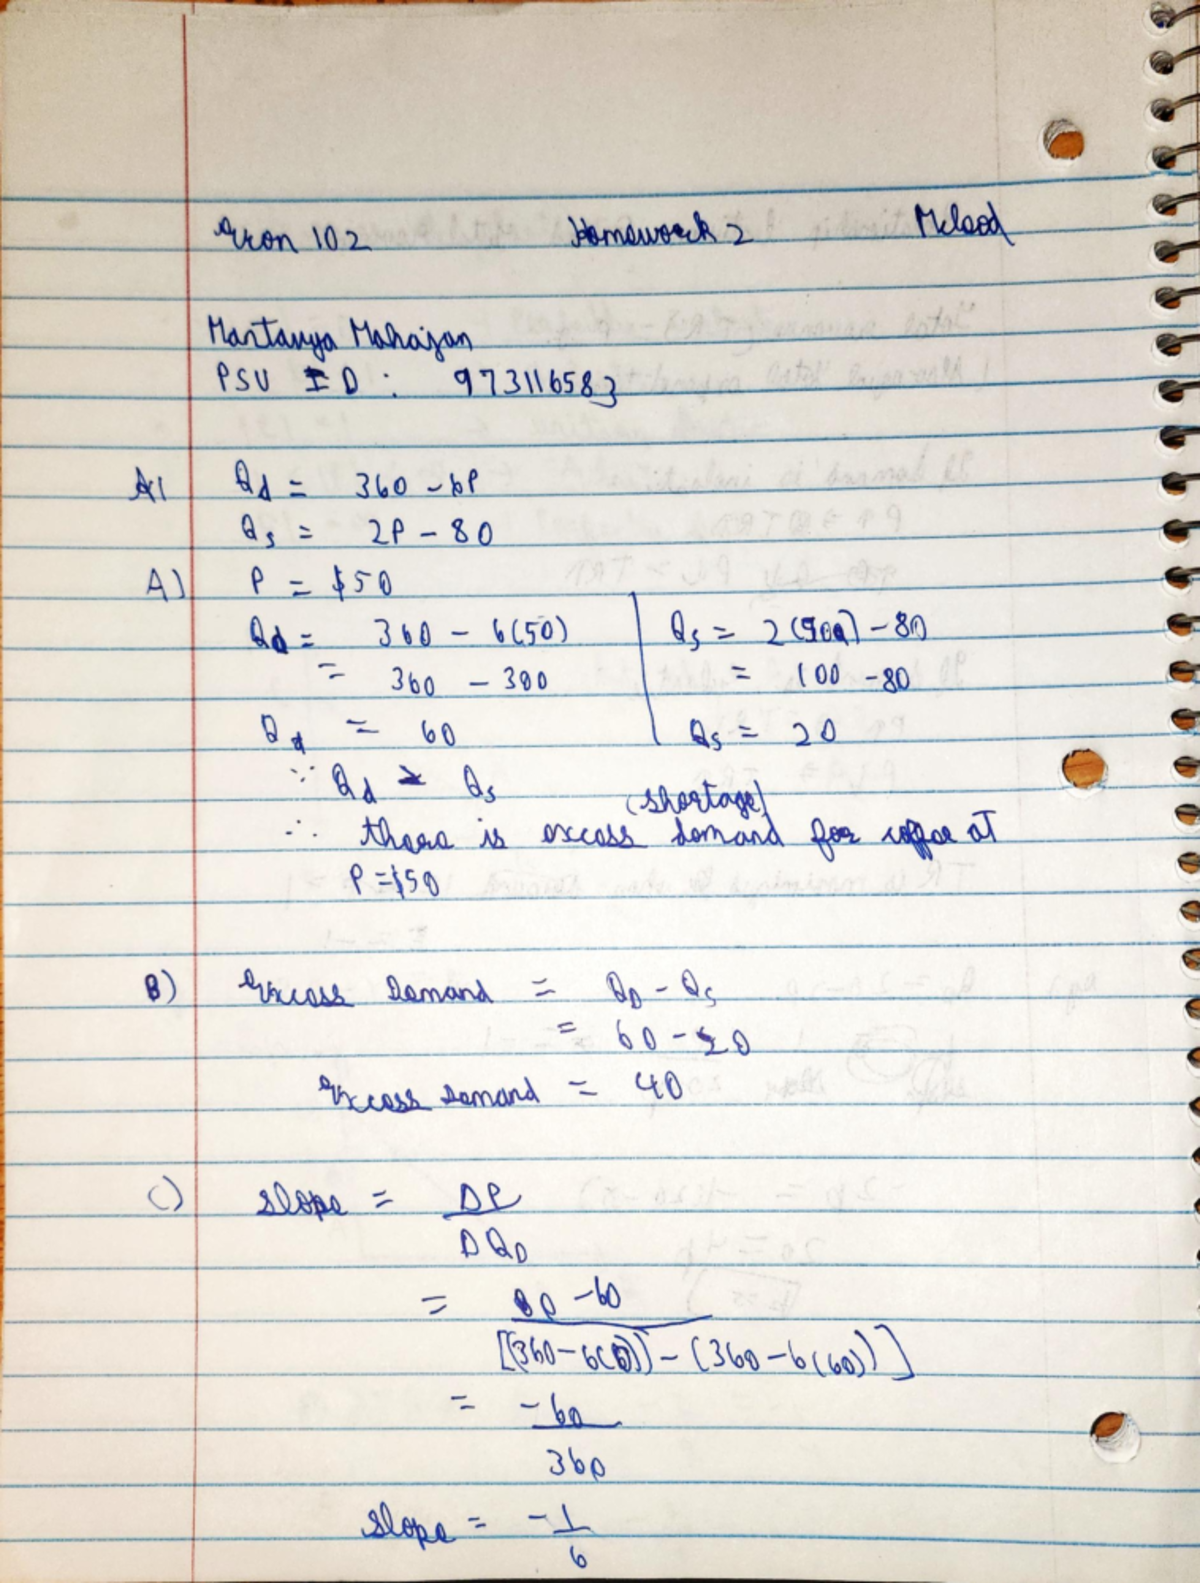 Econ 102 Homework 2 Mcleod
Mantavya Mahajan
PSU ID : 973116583
A1 Qd = 360 - 6P
Qs = 2P - 80
A) P = $50
Qd = 360 - 6(50) Qs = 2(50) - 80
= 360 - 300 = 100 - 80
Qd = 60 Qs = 20
∵ Qd > Qs
(shortage)
∴ there is excess demand for coffee at
P = $50
B) Excess Demand = QD - Qs
= 60 - 20
Excess Demand = 40
C) slope = DP
DQD
= 0 - 60
[(360 - 6(0)) - (360 - 6(60))]
= -60
360
slope = -1
6